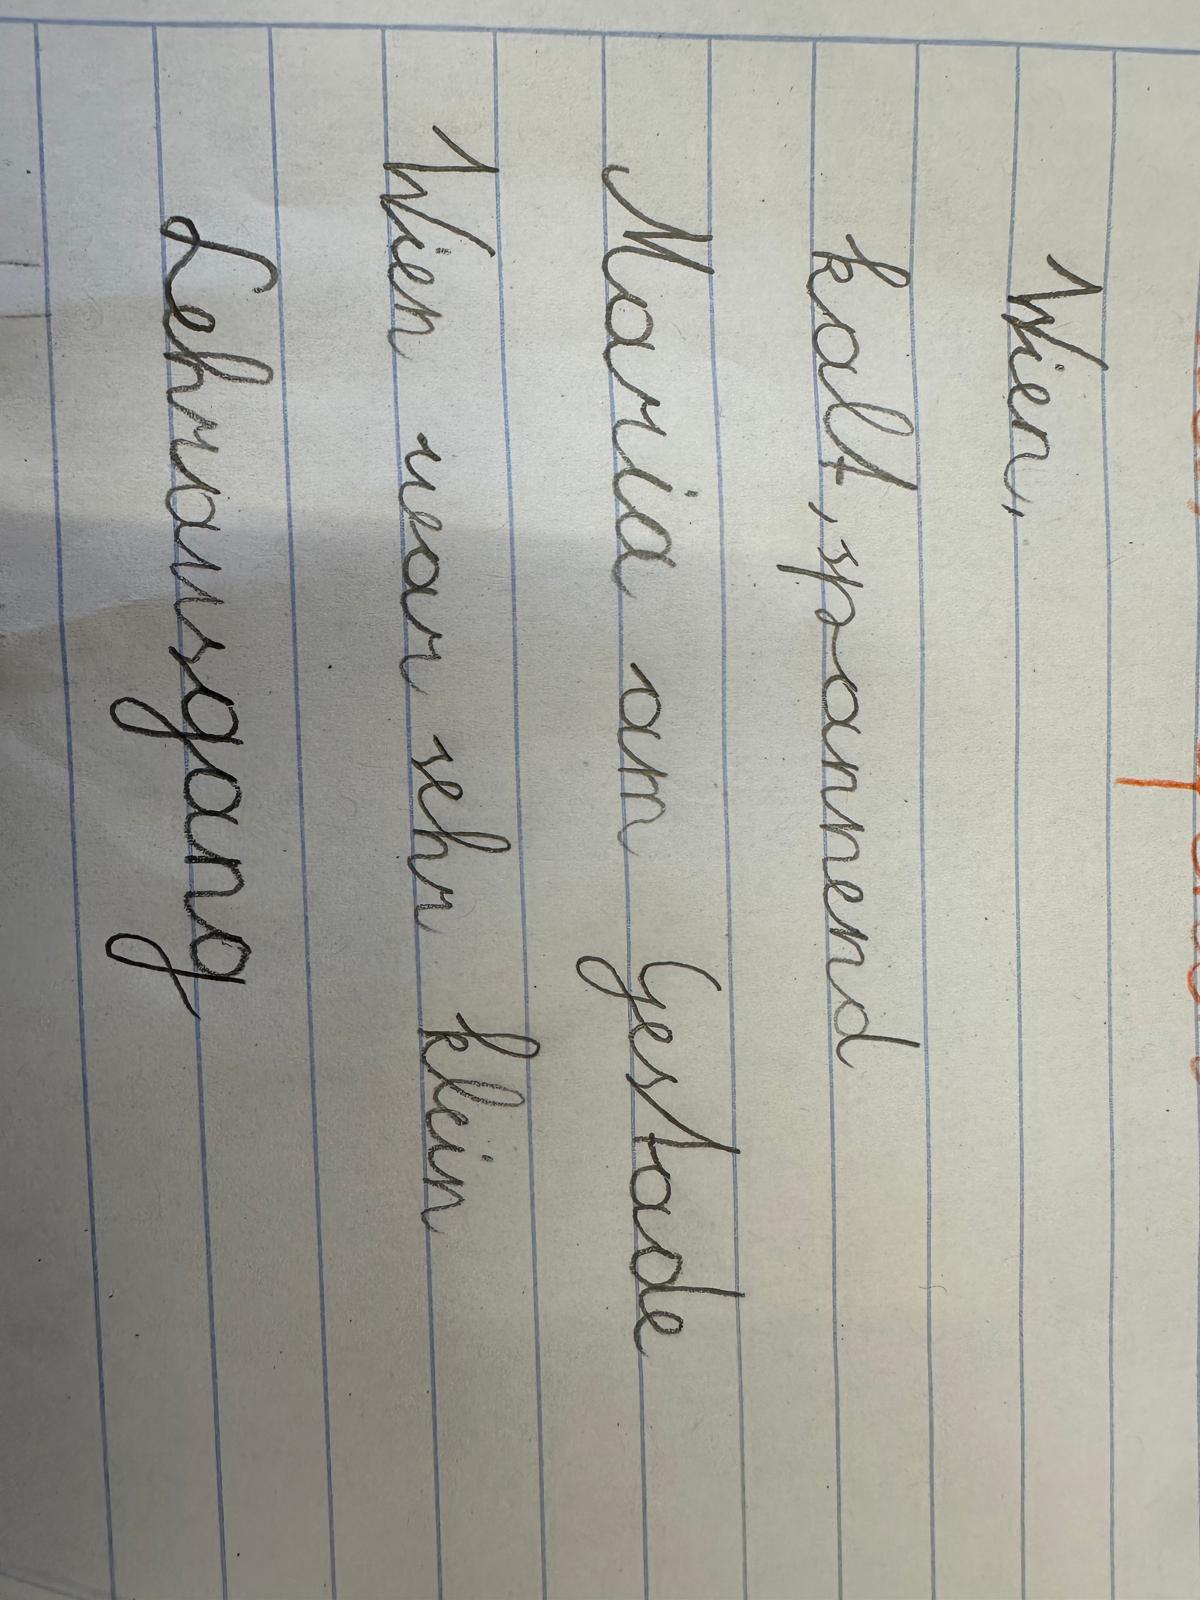 Wien,
kalt, spannend
Maria am Gestade
Wien war sehr klein
Lehrausgang